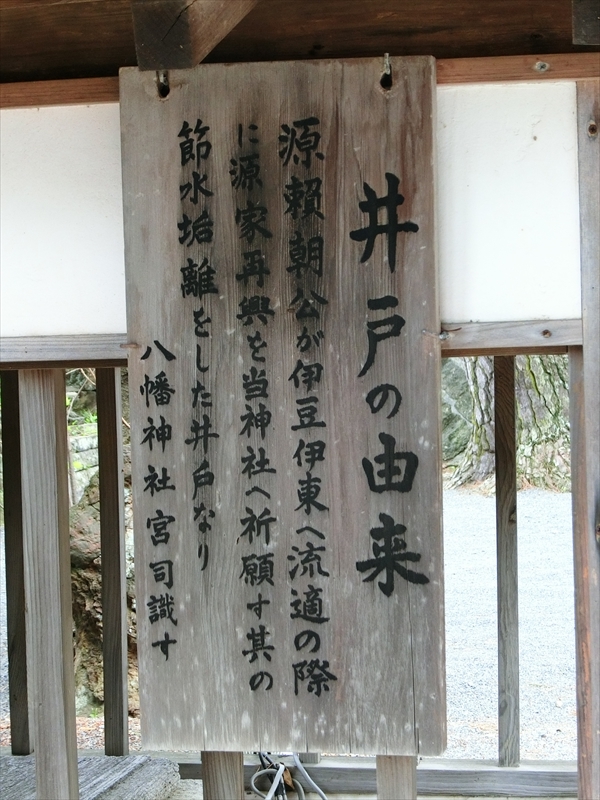 井戸の由来
源賴朝公が伊豆伊東へ流適の際
に源家再興を当神社へ祈願す其の
節水垢離をした井戸なり
八幡神社宮司識す